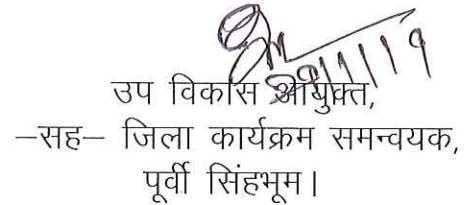 उप विकास आयुक्त,
–सह– जिला कार्यक्रम समन्वयक,
पूर्वी सिंहभूम।